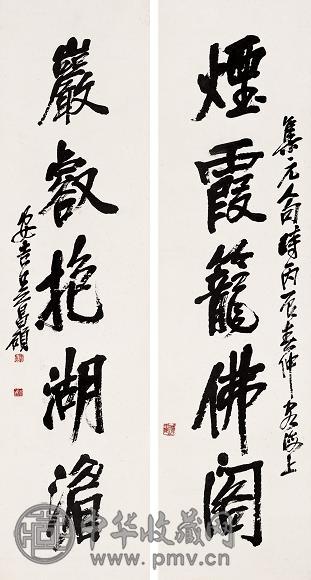 集元人句時丙辰春仲客海上
煙霞籠佛閣
巖叡抱湖
安吉吳昌碩
中华收藏网
www.pmv.cn